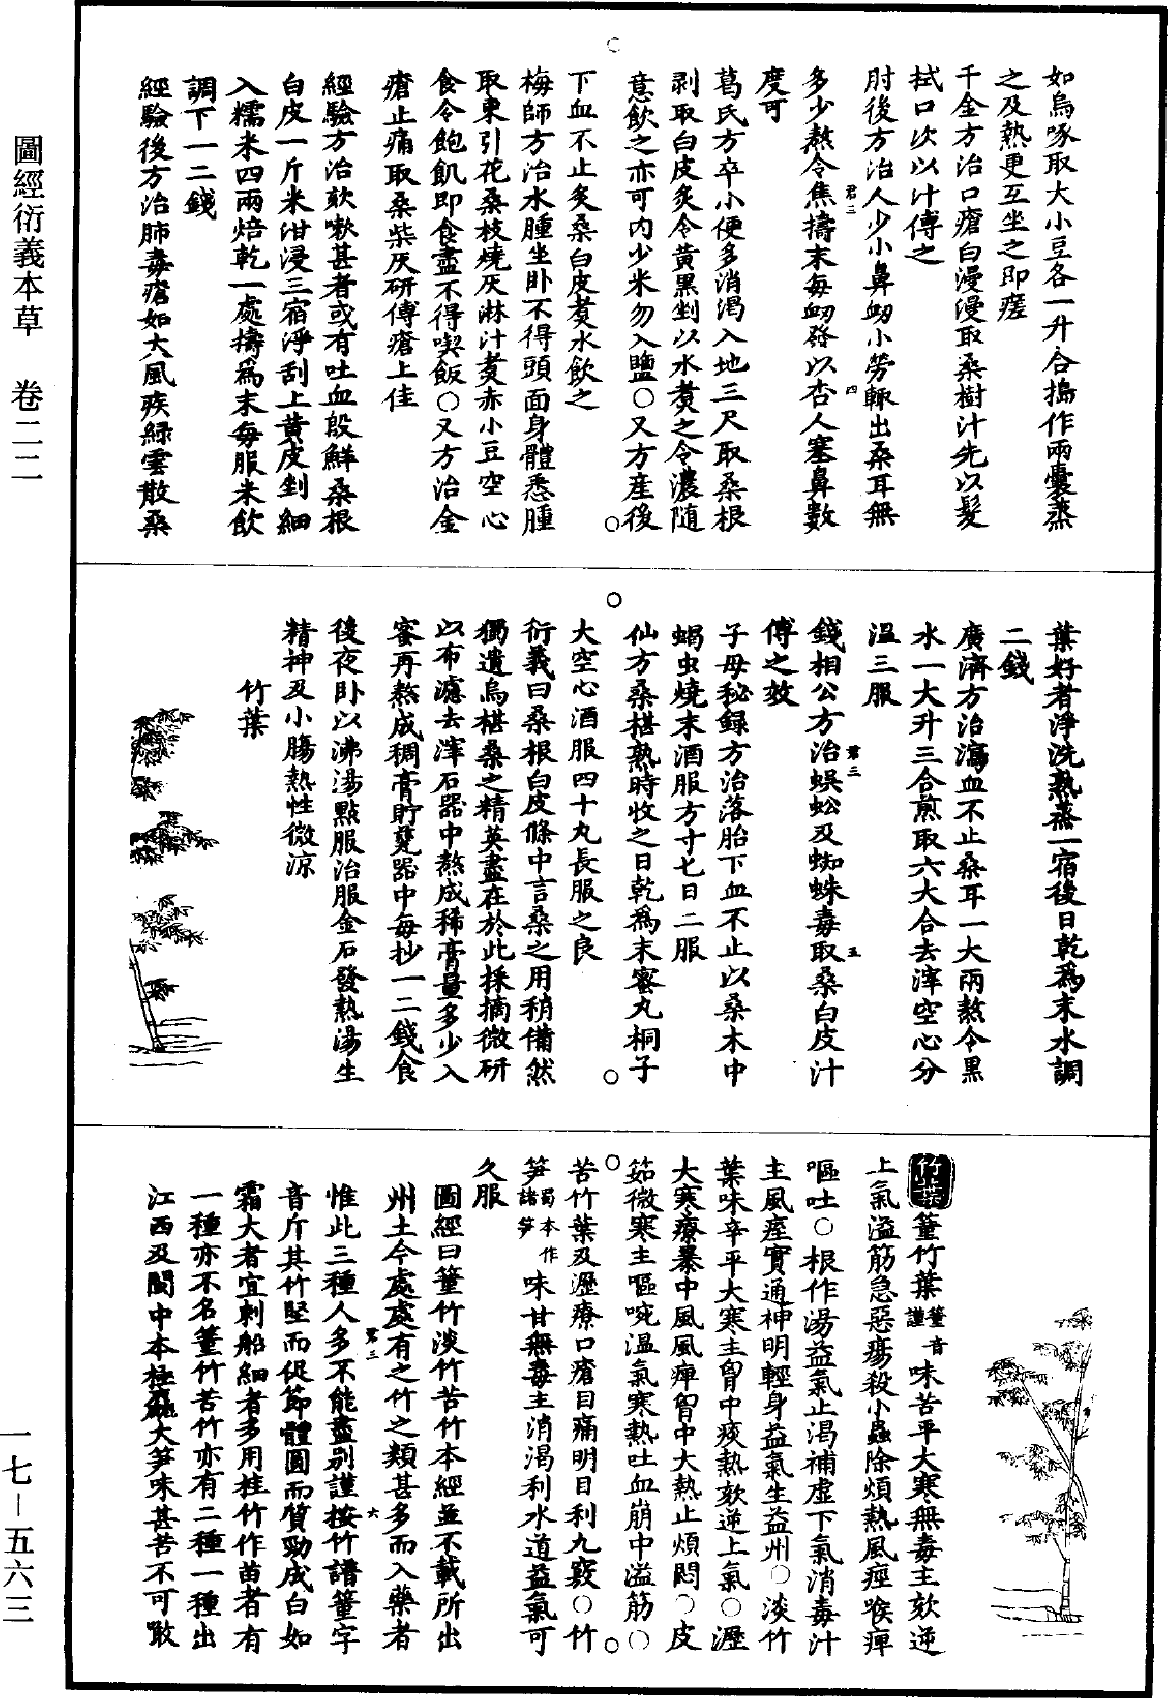 圖經衍義本草　卷二二
一七－五六三
如烏啄取大小豆各一升合搗作兩囊蒸
之及熱更互坐之即瘥
千金方治口瘡白漫漫取桑樹汁先以髮
拭口次以汁傅之
肘後方治人少小鼻衄小勞輒出桑耳無
多少熬令焦擣末每衄發以杏人塞鼻數
度可
君三
四
葛氏方卒小便多消渴入地三尺取桑根
剥取白皮炙令黃黑剉以水煑之令濃隨
意飲之亦可內少米勿入鹽○又方産後
下血不止炙桑白皮煑水飲之
梅師方治水腫坐臥不得頭面身體悉腫
取東引花桑枝燒灰淋汁煑赤小豆空心
食令飽飢即食盡不得喫飯○又方治金
瘡止痛取桑柴灰研傅瘡上佳
經驗方治欬嗽甚者或有吐血殷鮮桑根
白皮一斤米泔浸三宿淨刮上黃皮剉細
入糯米四兩焙乾一處擣爲末每服米飲
調下一二錢
經驗後方治肺毒瘡如大風疾綠雲散桑
葉好者淨洗熟蒸一宿後日乾爲末水調
二錢
廣濟方治瀉血不止桑耳一大兩熬令黑
水一大升三合煎取六大合去滓空心分
溫三服
錢相公方治蜈蚣及蜘蛛毒取桑白皮汁
傅之效
君三
五
子母秘録方治落胎下血不止以桑木中
蝎虫燒末酒服方寸匕日二服
仙方桑椹熟時收之日乾爲末蜜丸桐子
大空心酒服四十丸長服之良
衍義曰桑根白皮條中言桑之用稍備然
獨遺烏椹桑之精英盡在於此採摘微研
以布濾去滓石器中熬成稀膏量多少入
蜜再熬成稠膏貯甆器中每抄一二錢食
後夜臥以沸湯點服治服金石發熱渴生
精神及小腸熱性微涼
竹葉
竹葉
䈽竹葉䈽音謹味苦平大寒無毒主欬逆
上氣溢筋急惡瘍殺小蟲除煩熱風痙喉痺
嘔吐○根作湯益氣止渴補虛下氣消毒汁
主風痓實通神明輕身益氣生益州○淡竹
葉味辛平大寒主胷中痰熱欬逆上氣○瀝
大寒療暴中風風痺胷中大熱止煩悶○皮
茹微寒主嘔啘溫氣寒熱吐血崩中溢筋○
苦竹葉及瀝療口瘡目痛明目利九竅○竹
笋蜀本作諸笋味甘無毒主消渴利水道益氣可
久服
圖經曰䈽竹淡竹苦竹本經並不載所出
州土今處處有之竹之類甚多而入藥者
君三
六
惟此三種人多不能盡別謹按竹譜䈽字
音斤其竹堅而促節體圓而質勁成白如
霜大者宜刺船細者多用桂竹作苗者有
一種亦不名䈽竹苦竹亦有二種一種出
江西及閩中本極麄大笋味甚苦不可噉